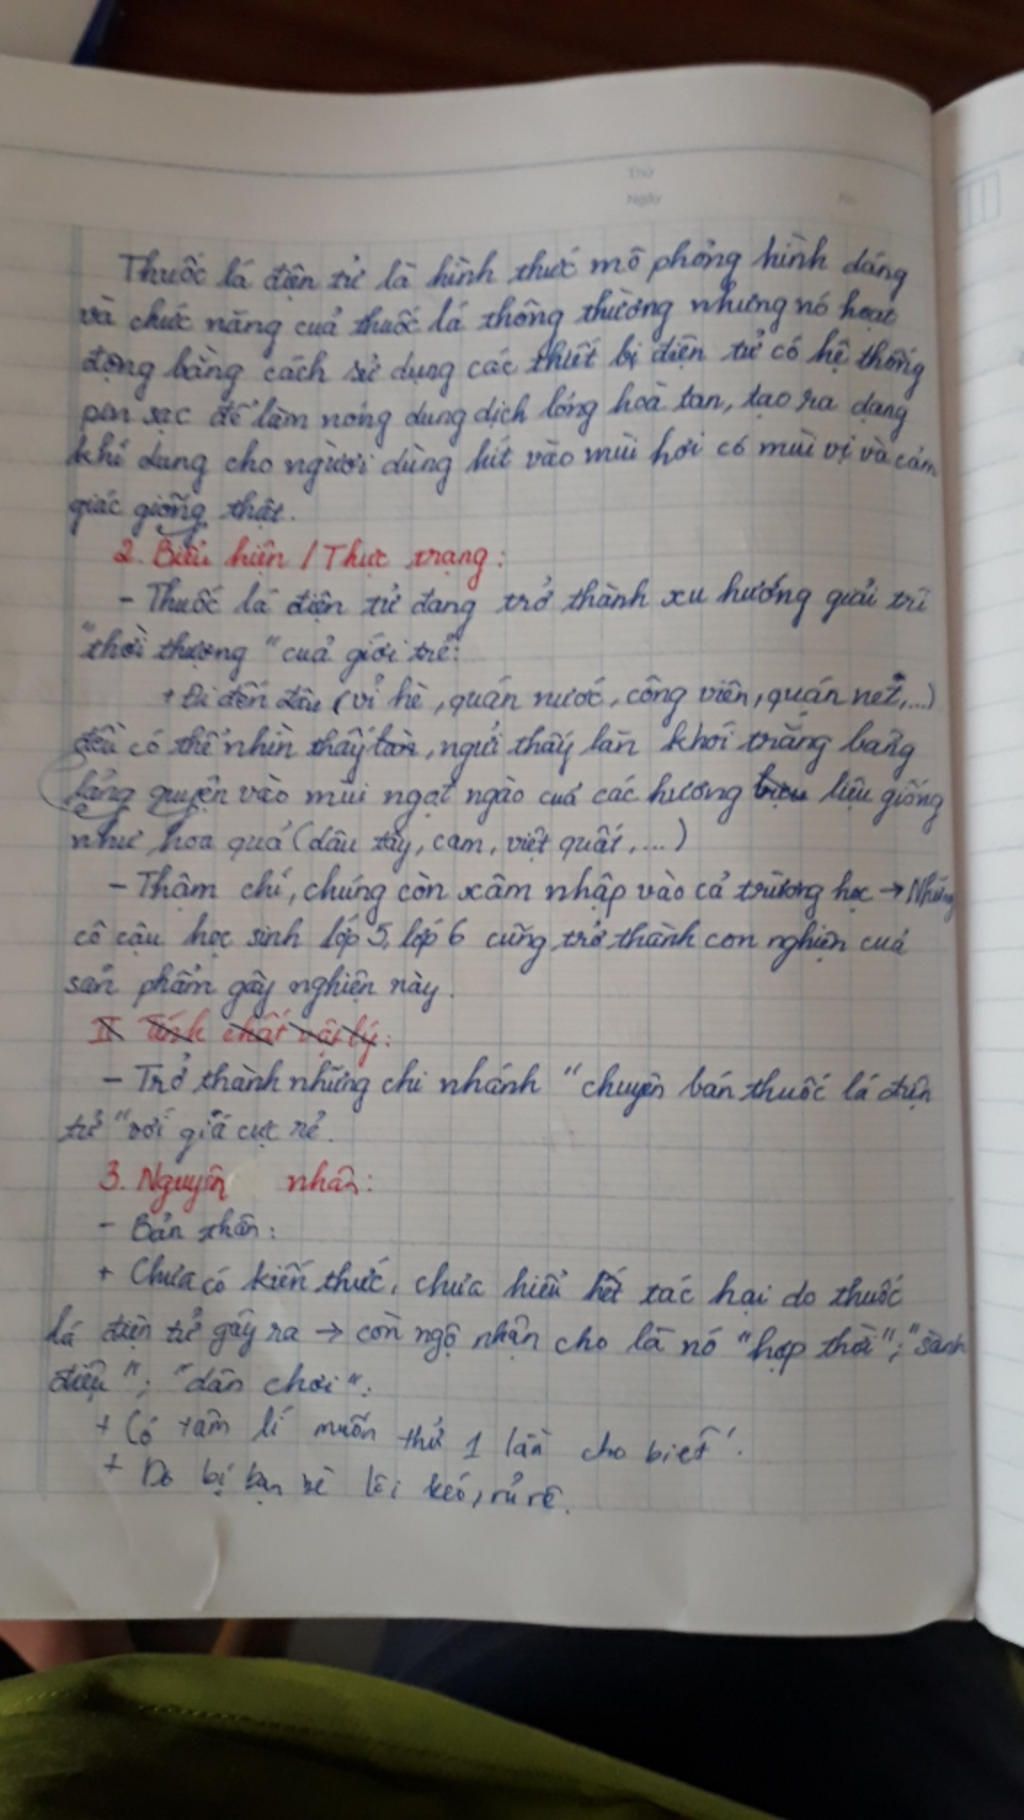 Thứ
Ngày
No
Thuốc lá điện tử là hình thức mô phỏng hình dáng
và chức năng cuả thuốc lá thông thường nhưng nó hoạt
động bằng cách sử dụng các thiết bị điện tử có hệ thống
pin sạc để làm nóng dung dịch lỏng hoà tan, tạo ra dạng
khí dung cho người dùng hít vào mùi hơi có mùi vị và cảm
giác giống thật.
2. Biểu hiện / Thực trạng:
- Thuốc lá điện tử đang trở thành xu hướng giải trí
"thời thượng" cuả giới trẻ:
+ Đi đến đâu (vỉ hè, quán nước, công viên, quán net,...)
đều có thể nhìn thấy làn, ngửi thấy làn khói trắng bảng
lảng quyện vào mùi ngọt ngào cuả các hương liệu giống
như hoa quả (dâu tây, cam, việt quất,...)
- Thậm chí, chúng còn xâm nhập vào cả trường học → Những
cô cậu học sinh lớp 5, lớp 6 cũng trở thành con nghiện cuả
sản phẩm gây nghiện này.
II Tính chất vật lý:
- Trở thành những chi nhánh "chuyên bán thuốc lá điện
tử" với giá cực rẻ.
3. Nguyên nhân:
- Bản thân:
+ Chưa có kiến thức, chưa hiểu hết tác hại do thuốc
lá điện tử gây ra → còn ngộ nhận cho là nó "hợp thời"; "sành
điệu"; "dân chơi".
+ Có tâm lí muốn thử 1 lần cho biết.
+ Do bị bạn bè lôi kéo, rủ rê.